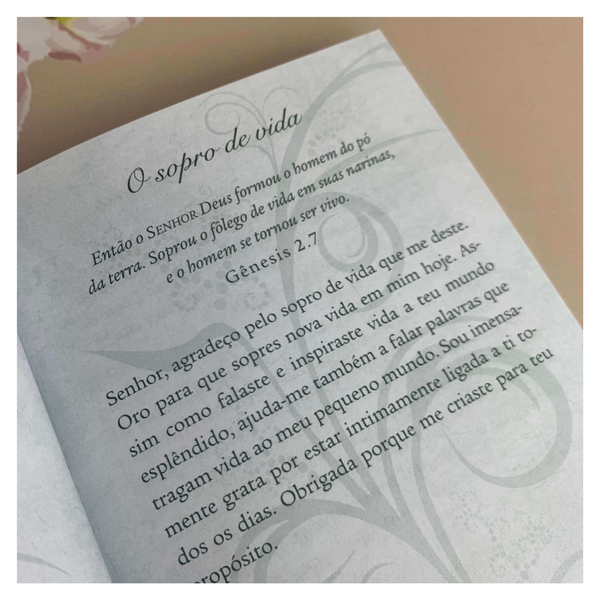 O sopro de vida
Então o SENHOR Deus formou o homem do pó
da terra. Soprou o fôlego de vida em suas narinas,
e o homem se tornou ser vivo.
Gênesis 2.7
Senhor, agradeço pelo sopro de vida que me deste.
Oro para que sopres nova vida em mim hoje. As-
sim como falaste e inspiraste vida a teu mundo
esplêndido, ajuda-me também a falar palavras que
tragam vida ao meu pequeno mundo. Sou imensa-
mente grata por estar intimamente ligada a ti to-
dos os dias. Obrigada porque me criaste para teu
propósito.